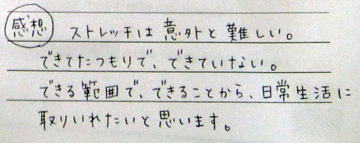 感想 ストレッチは意外と難しい。
できてたつもりで、できていない。
できる範囲で、できることから、日常生活に
取りいれたいと思います。